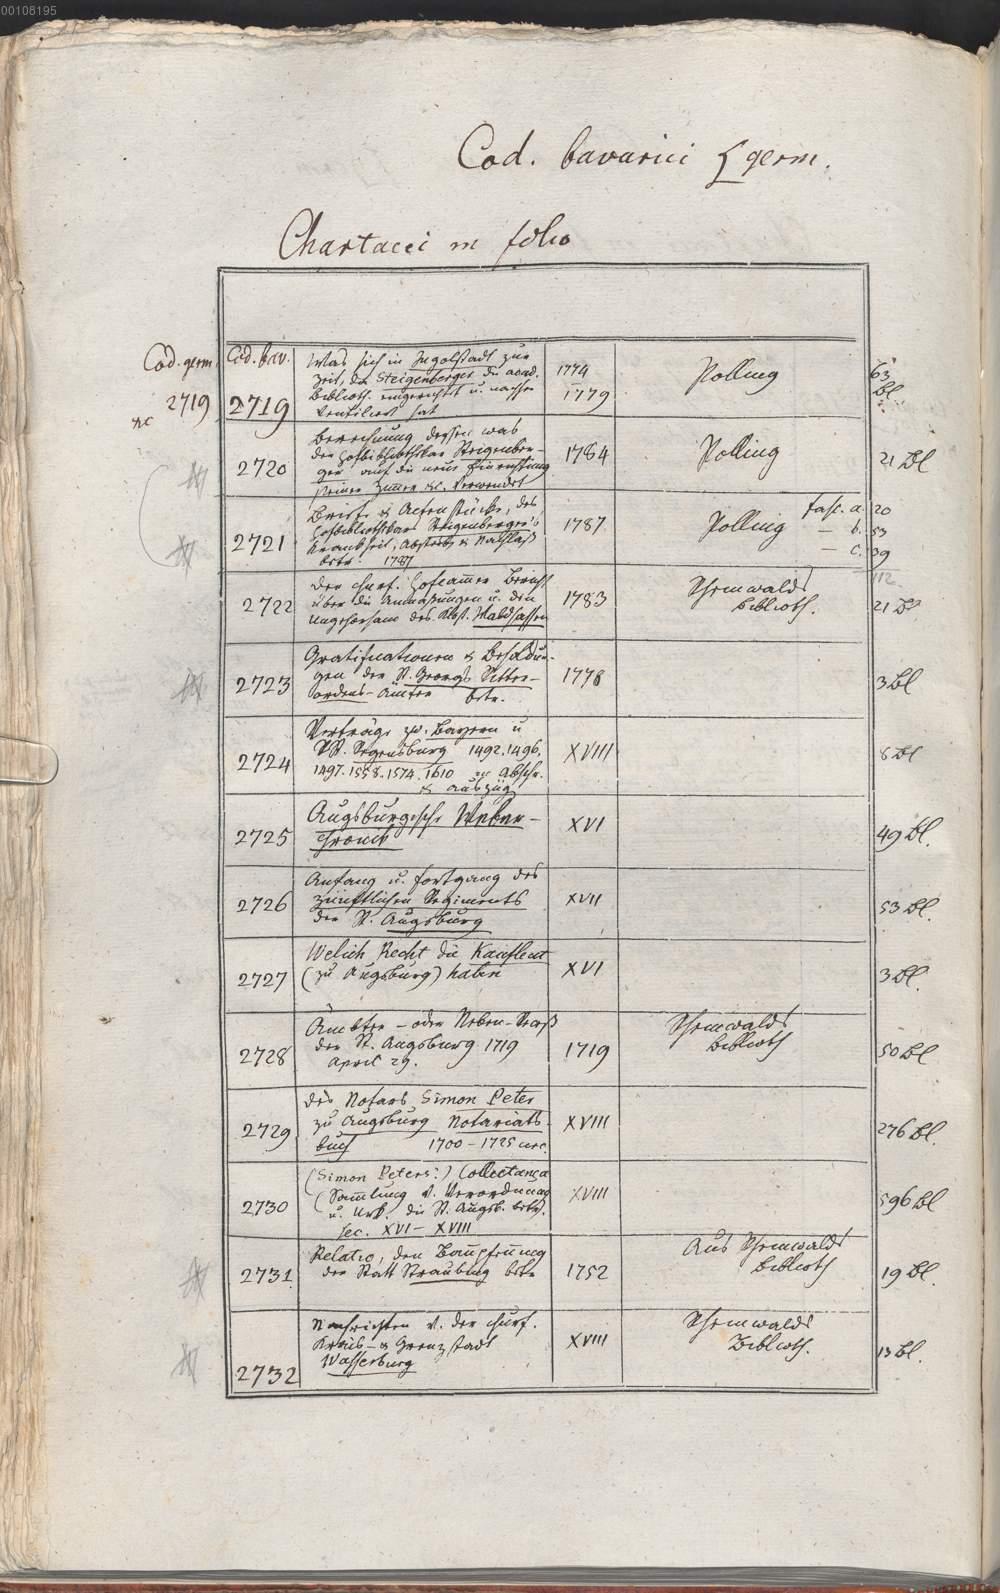 00108195
Cod. bavarici germ.
Chartacei in folio
Cod. germ.
2719
Cod. bav.
2719
Was sich in Ingolstadt zur
Zeit, da Steigenberger die acad.
Biblioth. eingerichtet u. nachher
hat
1774
1779
Polling
63
Bl.
2720
Berechnung dessen was
der Hofbibliothekar Steigenber-
ger auf die neue Einrichtung
seiner Zimmer &c. verwendet
1784
Polling
21 Bl
2721
Briefe & Actenstücke, des
Hofbibliothekars Steigenberger's
Krankheit, Absterben & Nachlaß
betr. 1787
1787
Polling
fasc. a. 20
— b. 53
— c. 39
112.
2722
Der churf. Hofcammer Bericht
über die Anmaßungen u. den
Ungehorsam des Abst. Waldsassen
1783
biblioth.
21 B
2723
Gratificationen & Besoldun-
gen der St. Georgs Ritter-
ordens-Ämter betr.
1778
3 Bl
2724
Verträge zw. Bayern u
St. Regensburg 1492. 1496.
1497. 1558. 1574. 1610 in Abschr.
& Auszüg
XVIII
8 Bl
2725
Augsburgische Weber-
chronik
XVI
49 Bl.
2726
Anfang u. Fortgang des
zünftlichen Regiments
der St. Augsburg
XVII
53 Bl.
2727
Welich Recht die Kaufleut
(zu Augsburg) haben
XVI
3 Bl.
2728
Ämbter - oder Neben-
der St. Augsburg 1719
April 29.
1719
Biblioth
50 Bl
2729
des Notars Simon Peter
zu Augsburg Notariats-
buch 1700 - 1725 circ.
XVIII
276 Bl.
2730
(Simon Peters?) Collectanea
(Sammlung v. Verordnung
u. Urk. die St. Augsb. betr.)
sec. XVI - XVIII
XVIII
596 Bl
2731
Relatio, den
der Statt Straubing betr
1752
Aus
Biblioth
19 Bl.
2732
Nachrichten v. der churf.
Kreis- & Grenzstadt
Wasserburg
XVIII
Biblioth.
13 Bl.